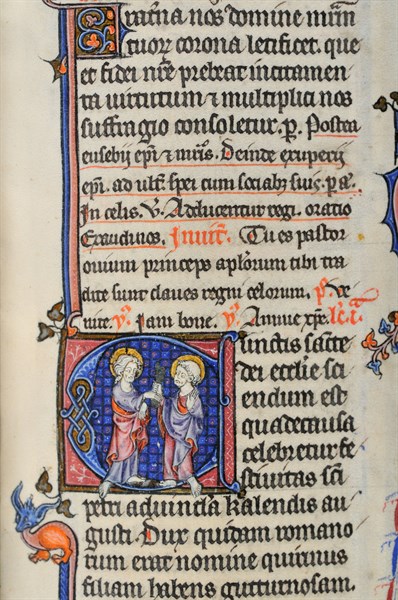 Fraterna nos domine mar̄
tuoꝝ corona letificet. que
et fidei nr̄e prebeat incitamen
ta uirtutum ⁊ multiplici nos
suffragio consoletur. p̱. Postea
eusebij ep̄i ⁊ mr̄is. Deinde exuperij
ep̄i. ad ult̄. spei cum socijs suis. p̄ a.
In celis. V. Adducentur regi. oratio
Exaudi nos. Inuit̄. Tu es pastor
ouium princeps ap̄lorum tibi tra
dite sunt claues regni celorum. p̄. Ve
nite. ỹ. Iam bone. ỹ. Annue xp̄e. lc̄. i.ᵃ
Cunctis sācte
dei ecc̄lie sci
endum est
qua de causa
celebretur fe
stiuitas sc̄i
petri aduincla kalendis au
gusti. Dux quidam romano
rum erat nomine quirinus
filiam habens gutturnosam.